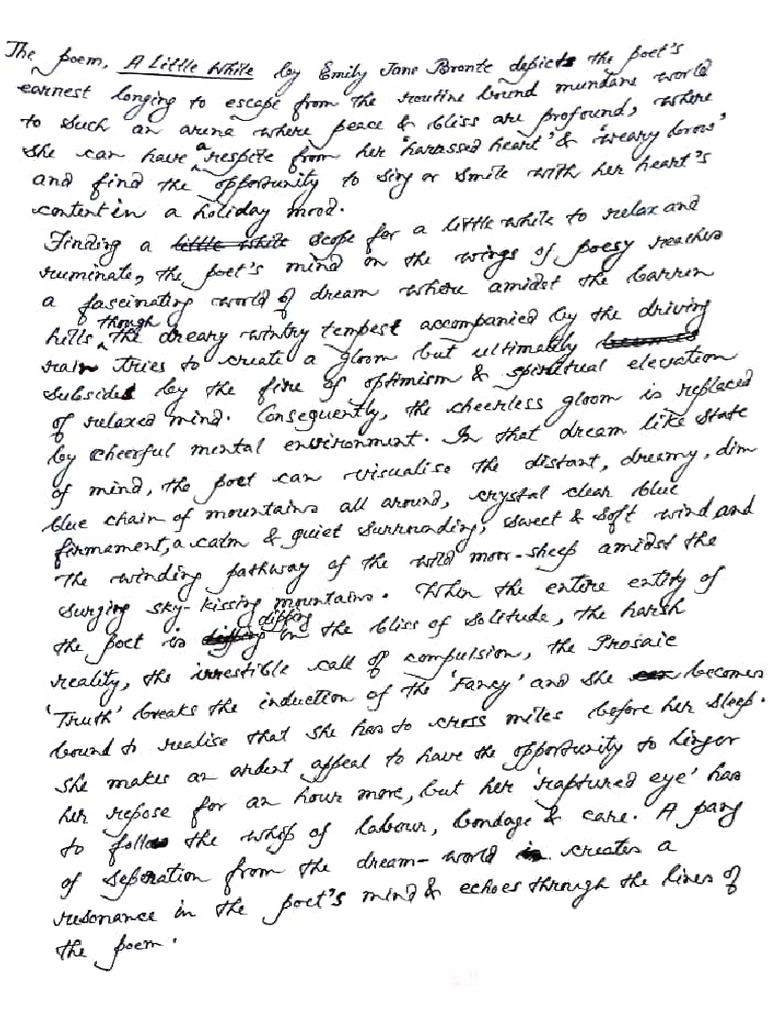 The poem, A Little While by Emily Jane Bronte depicts the poet's
earnest longing to escape from the routine bound mundane world
to such an arena where peace & bliss are profound, where
she can have a respite from her 'harassed heart' & 'weary brow'
and find the opportunity to sing or smile with her heart's
content in a holiday mood.
Finding a little while scope for a little while to relax and
ruminate, the poet's mind on the wings of poesy reaches
a fascinating world of dream where amidst the barren
hills though the dreary wintry tempest accompanied by the driving
rain tries to create a gloom but ultimately
subsides by the fire of optimism & spiritual elevation
of relaxed mind. Consequently, the cheerless gloom is replaced
by cheerful mental environment. In that dream like state
of mind, the poet can visualise the distant, dreamy, dim
blue chain of mountains all around, crystal clear blue
firmament, a calm & quiet surrounding, sweet & soft wind and
the winding pathway of the wild moor-sheep amidst the
surging sky-kissing mountains. When the entire entity of
the poet is diffing in the bliss of solitude, the harsh
reality, the irrestible call of compulsion, the Prosaic
'Truth' breaks the induction of the 'Fancy' and she becomes
bound to realise that she has to cross miles before her sleep.
She makes an ardent appeal to have the opportunity to linger
her repose for an hour more, but her 'raptured eye' has
to follow the whip of labour, bondage & care. A pang
of seperation from the dream-world creates a
resonance in the poet's mind & echoes through the lines of
the poem.